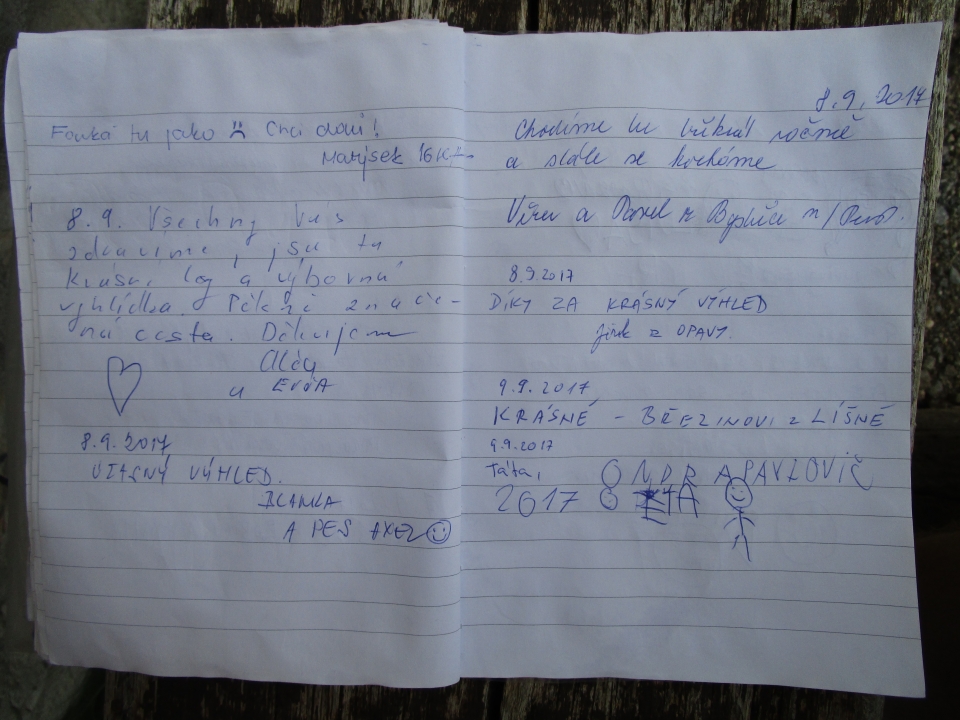 Fouká tu jako Chci domů!
Matýsek
8.9. Všechny Vás
zdravíme, jsou tu
krásn. a výborná
vyhlídka. Pěkně znače-
ná cesta. Děkujem
a EVČA
8.9.2017
ÚŽASNÝ VÝHLED.
BLANKA
A PES AXEL
8.9.2017
Chodíme tu několikrát ročně
a stále se kocháme
Věra a Pavel z Bystřice n/Pern.
8.9.2017
DÍKY ZA KRÁSNÝ VÝHLED
z OPAVY.
9.9.2017
KRÁSNÉ - BŘEZINOVI z LÍŠNĚ
9.9.2017
Táta, ONDRA PAVLOVIČ
2017